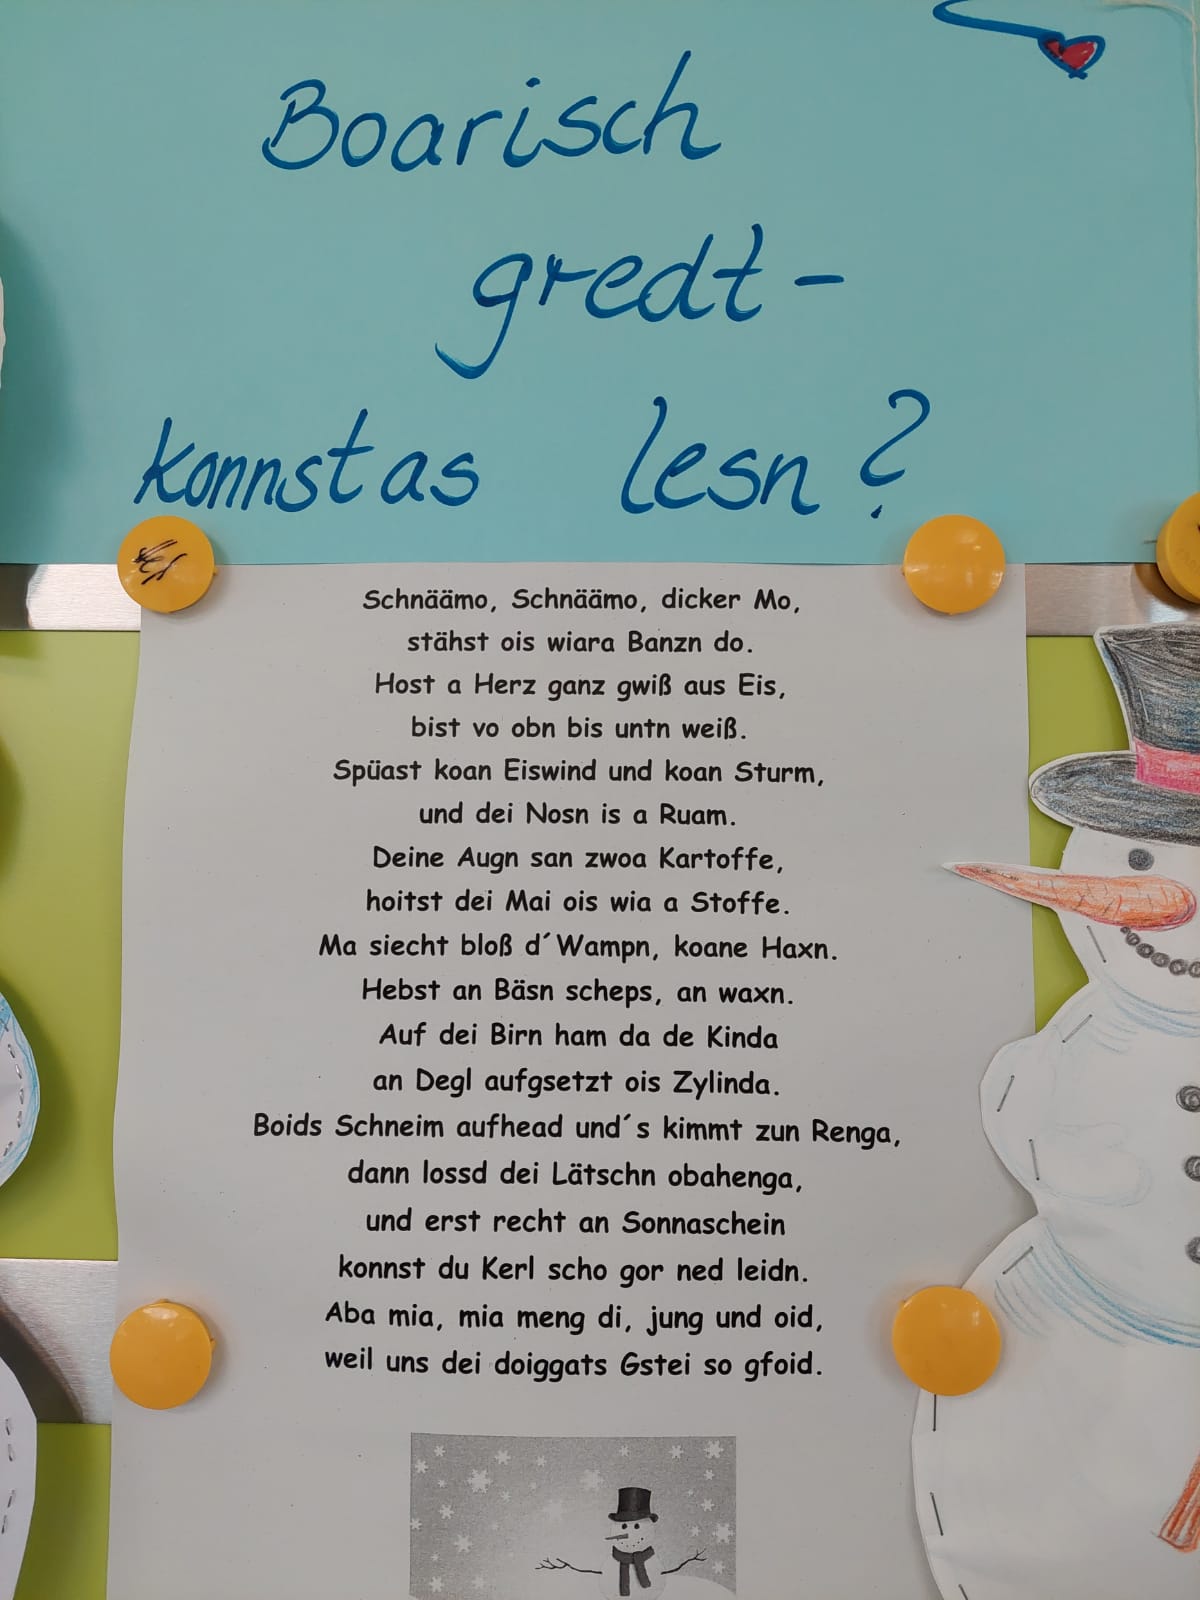 Boarisch
gredt-
konnst as lesn?
Schnäämo, Schnäämo, dicker Mo,
stähst ois wiara Banzn do.
Host a Herz ganz gwiß aus Eis,
bist vo obn bis untn weiß.
Spüast koan Eiswind und koan Sturm,
und dei Nosn is a Ruam.
Deine Augn san zwoa Kartoffe,
hoitst dei Mai ois wia a Stoffe.
Ma siecht bloß d´Wampn, koane Haxn.
Hebst an Bäsn scheps, an waxn.
Auf dei Birn ham da de Kinda
an Degl aufgsetzt ois Zylinda.
Boids Schneim aufhead und´s kimmt zun Renga,
dann lossd dei Lätschn obahenga,
und erst recht an Sonnaschein
konnst du Kerl scho gor ned leidn.
Aba mia, mia meng di, jung und oid,
weil uns dei doiggats Gstei so gfoid.